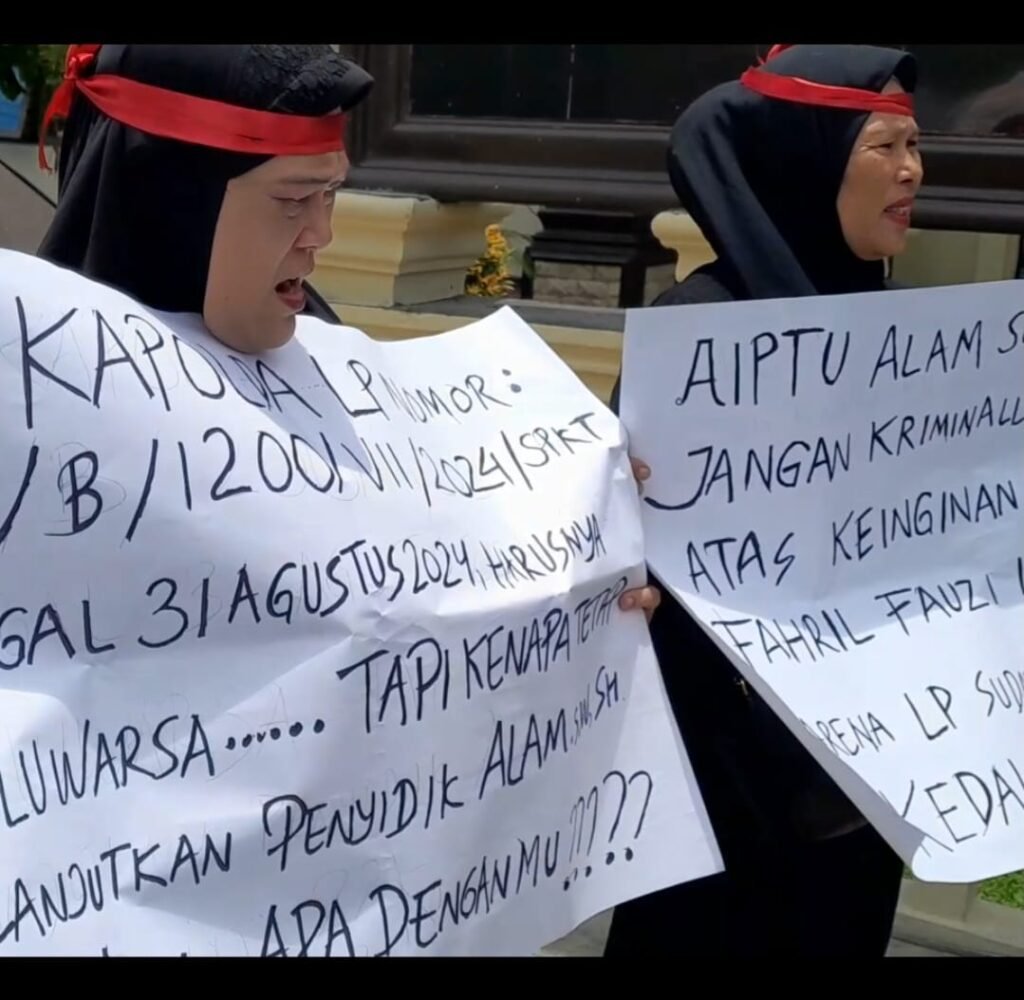 KAPOLDA LP NOMOR :
/B/1200/VII/2024/SPKT
GAL 31 AGUSTUS 2024, HARUSNYA
LUWARSA...... TAPI KENAPA TETAP
LANJUTKAN PENYIDIK ALAM.S.W,SH
APA DENGANMU !!???
AIPTU ALAM S
JANGAN KRIMINALL
ATAS KEINGINAN
FAHRIL FAUZI
ARENA LP SUD
KEDAL